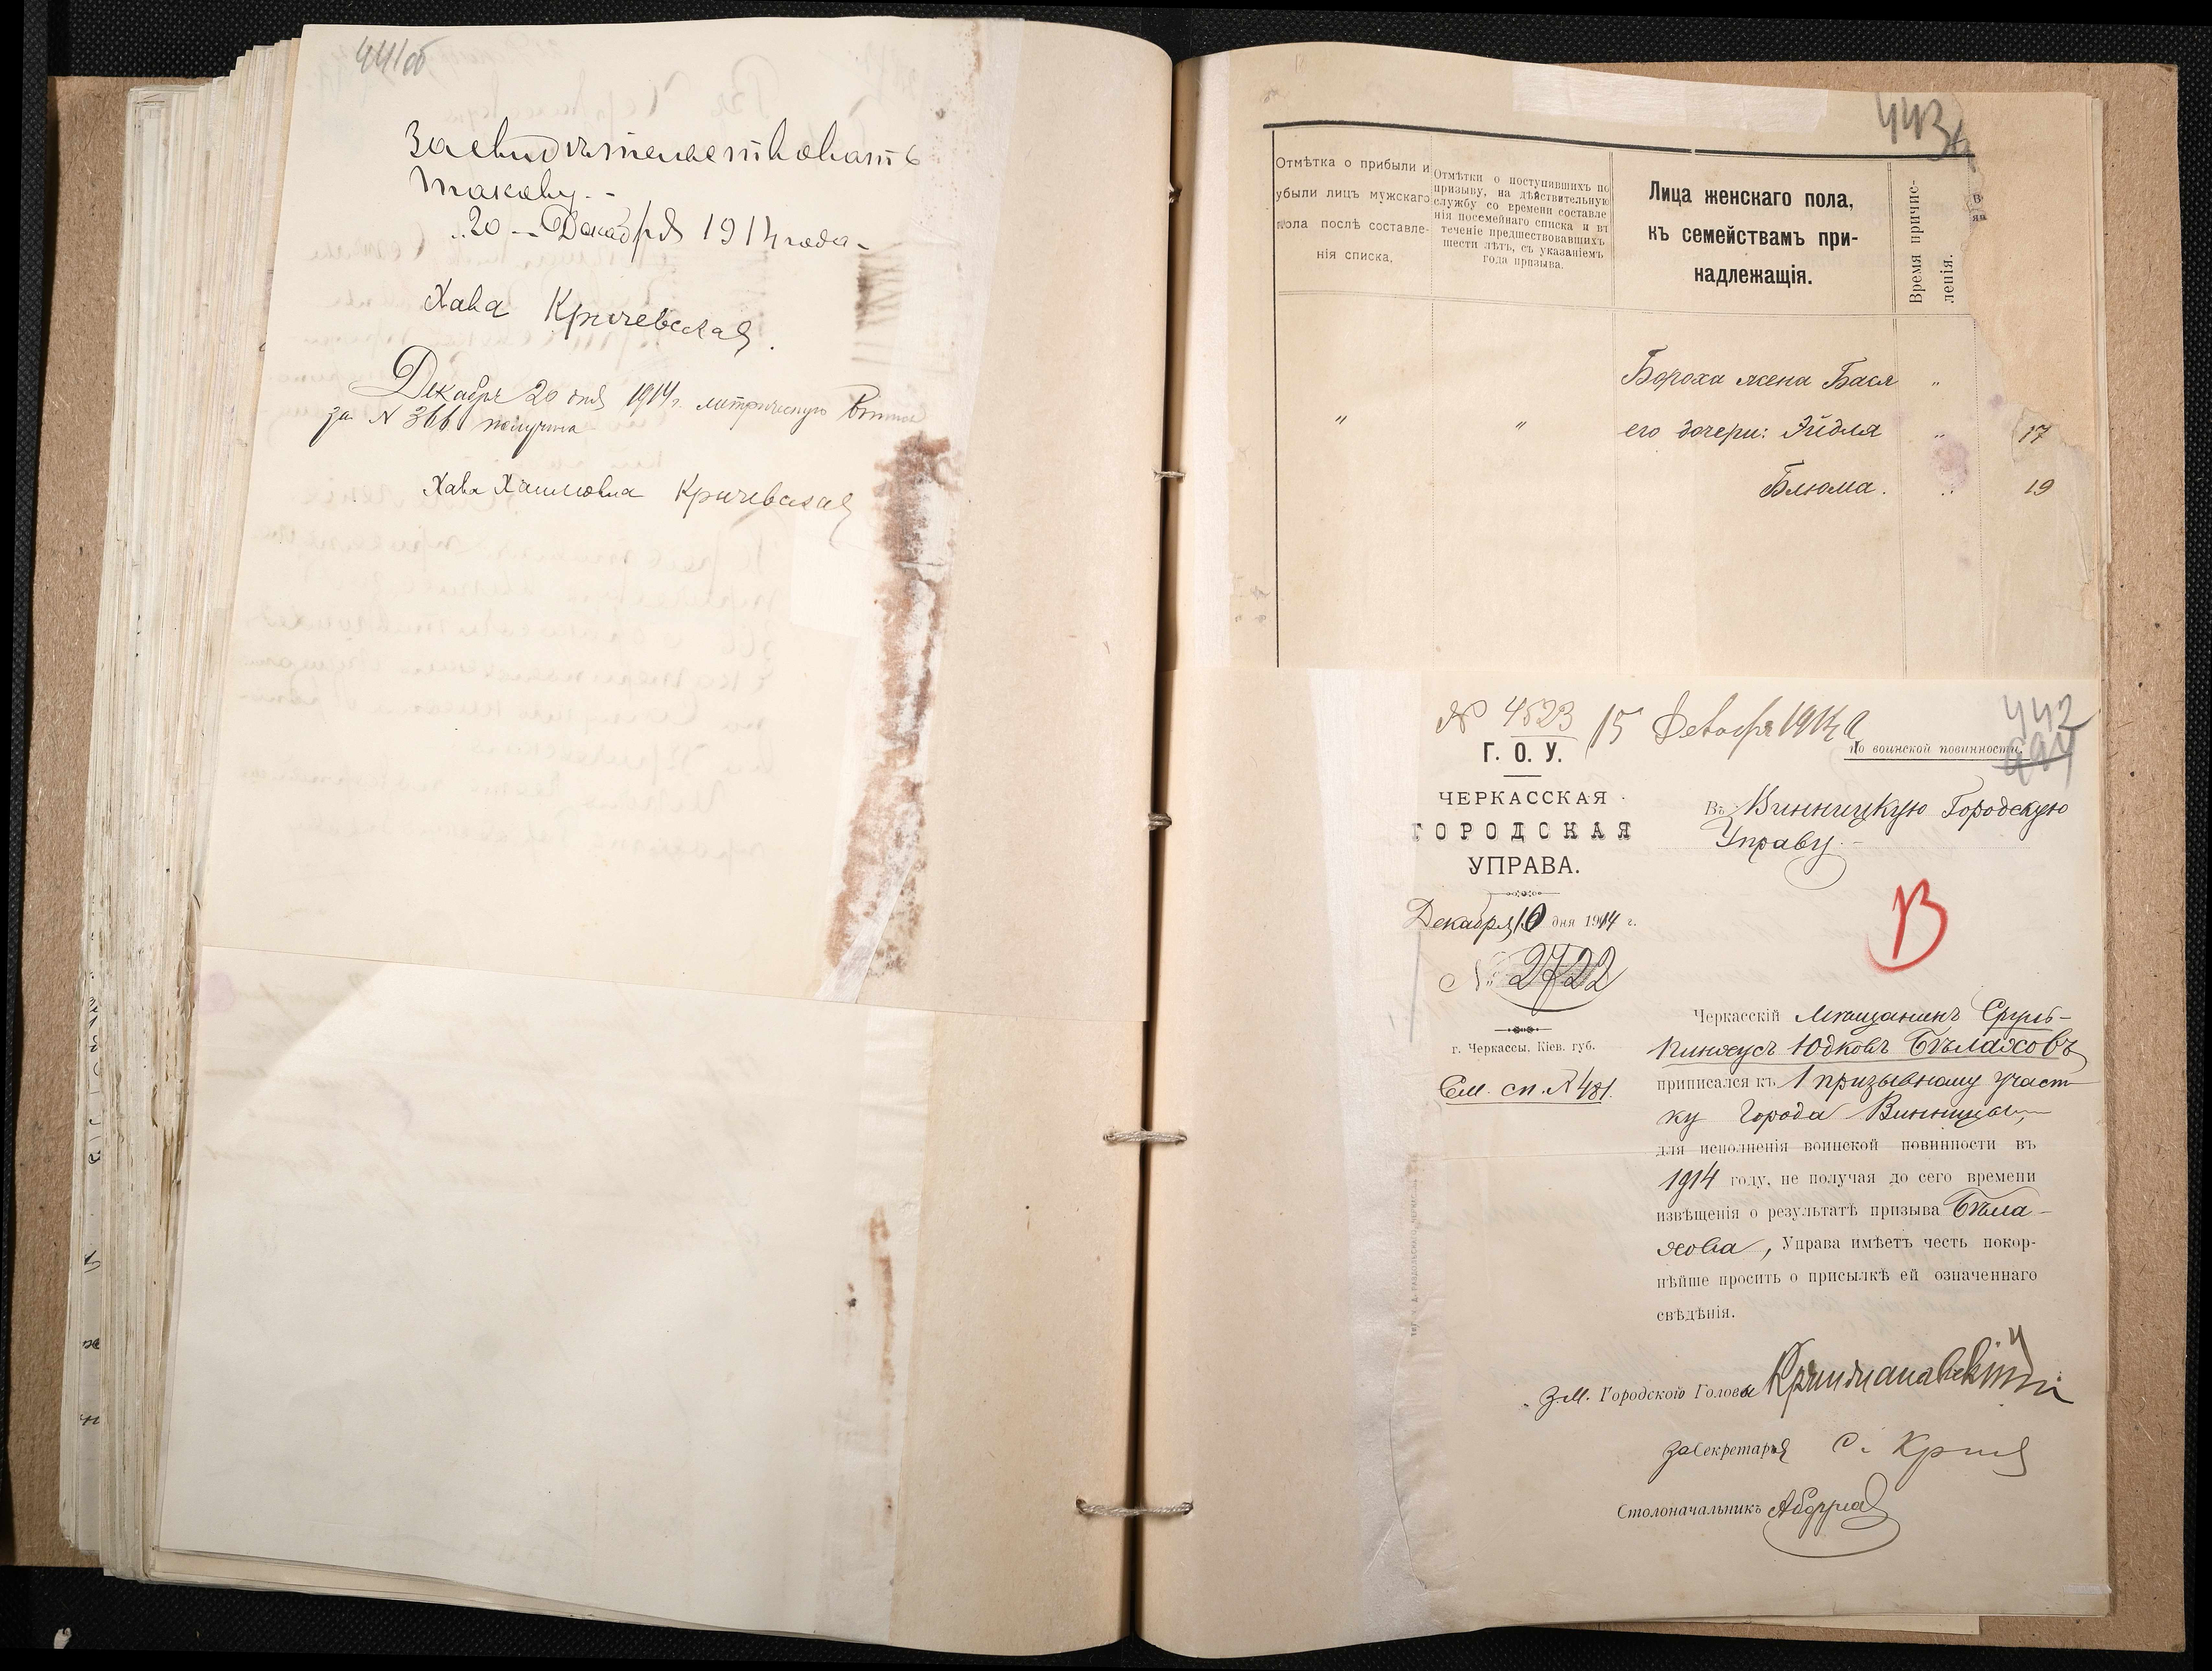 441об
Засвидѣтельствовать
такову. -
20 - Декабря 1914 года -
Хава Кричевская.
Декабря 20 дня 1914 г. метрическую
за N 366 получила
Хава Хаимовна Кричевская
443
Отмѣтка о прибыли и
убыли лицъ мужскаго
пола послѣ составле-
нія списка.
Отмѣтки о поступившихъ по
призыву, на дѣйствительную
службу со времени составле
нія посемейнаго списка и въ
теченіе предшествовавшихъ
шести лѣтъ, съ указаніемъ
года призыва.
Лица женскаго пола,
къ семействамъ при-
надлежащія.
Время причис-
ленія.
Бороха жена Бася "
" " его дочери: Эйдля " 17
Блюма. " 19
№ 4523 15 Декабря 1914
442
Г. О. У.
По воинской повинности.
ЧЕРКАССКАЯ
ГОРОДСКАЯ
УПРАВА.
Декабря 10 дня 1914 г.
№ 2722
г. Черкассы, Кіев. губ.
См. сп. № 481.
Въ Винницкую Городскую
Управу. -
В
Черкасскій мѣщанинъ Сруль-
Пинхусъ Юдковъ Бѣлаховъ
приписался къ 1 призывному участ
ку города Винницы,
для исполненія воинской повинности въ
1914 году, не получая до сего времени
извѣщенія о результатѣ призыва Бѣла-
хова, Управа имѣетъ честь покор-
нѣйше просить о присылкѣ ей означеннаго
свѣдѣнія.
З.М. Городского Головы
За Секретаря
Столоначальникъ